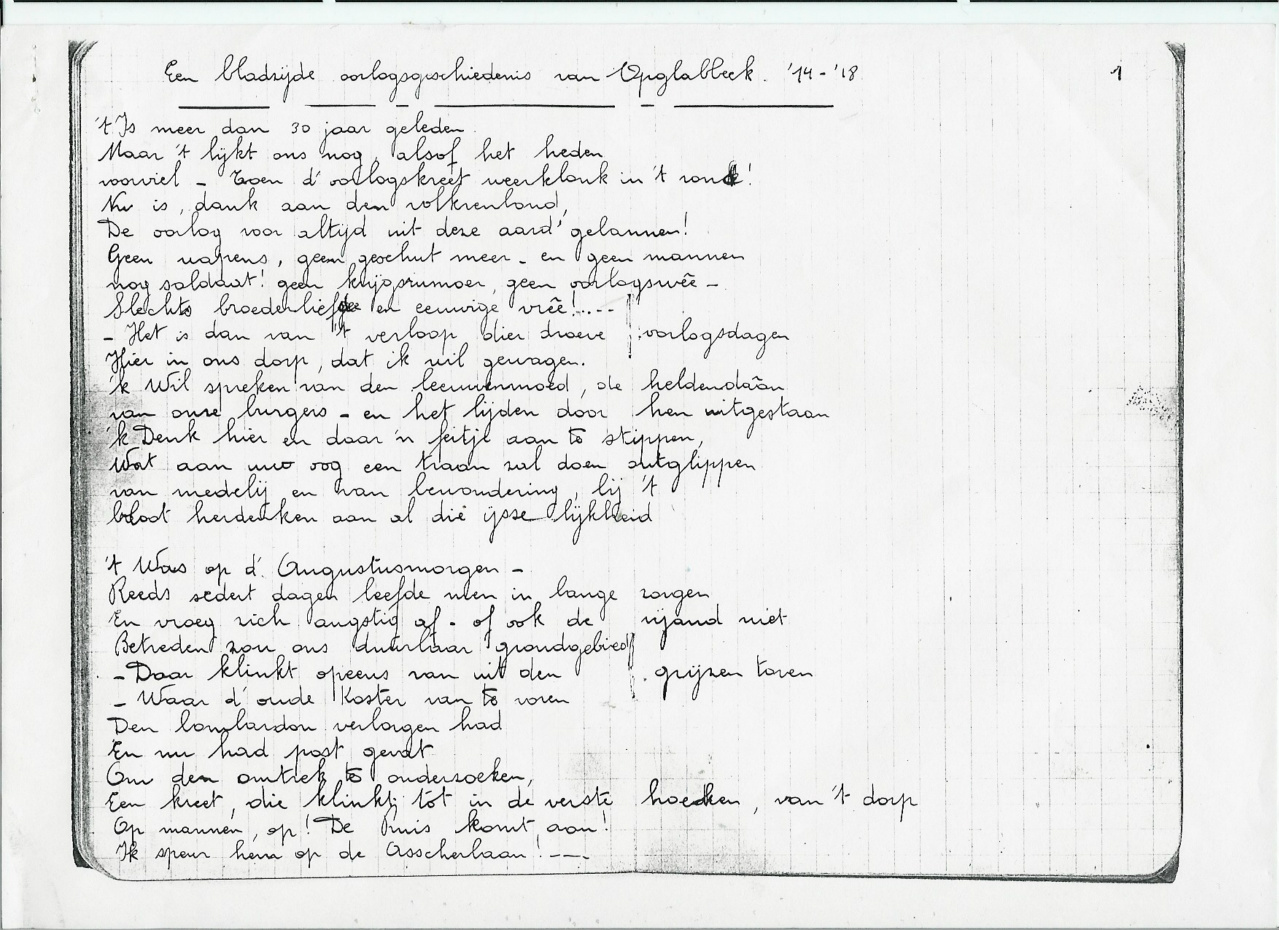 Een bladzijde oorlogsgeschiedenis van Opglabbeek. '14-'18
1
't Is meer dan 30 jaar geleden
Maar 't lijkt ons nog, alsof het heden
voorviel - Toen d' oorlogskreet weerklonk in 't rond!
Nu is, dank aan den volkrenbond,
De oorlog voor altijd uit deze aard' gebannen!
Geen wapens, geen geschut meer - en geen mannen
nog soldaat! geen krijgsrumoer, geen oorlogswêe -
Slechts broederliefde en eeuwige vrêe!....
- Het is dan van 't verloop dier droeve oorlogsdagen
Hier in ons dorp, dat ik wil gewagen.
'k Wil spreken van den leeuwenmoed, de heldendaân
van onze burgers - en het lijden door hen uitgestaan
'k Denk hier en daar 'n feitje aan te stippen,
Wat aan uw oog een traan zal doen ontglippen
van medelij en van bewondering, bij 't
bloot herdenken aan al die ijsselijkheid
't Was op d' Augustusmorgen -
Reeds sedert dagen leefde men in bange zorgen
En vroeg zich angstig af - of ook de vijand niet
Betreden zou ons duurbaar grondgebied
- Daar klinkt opeens van uit den grijzen toren
- Waar d' oude Koster van te voren
Den bombardon verborgen had
En nu had post gevat
Om den omtrek te onderzoeken,
Een kreet, die klinkt tot in de verste hoeken, van 't dorp
Op mannen, op! De Pruis komt aan!
Ik speur hem op de Asscherbaan!---.